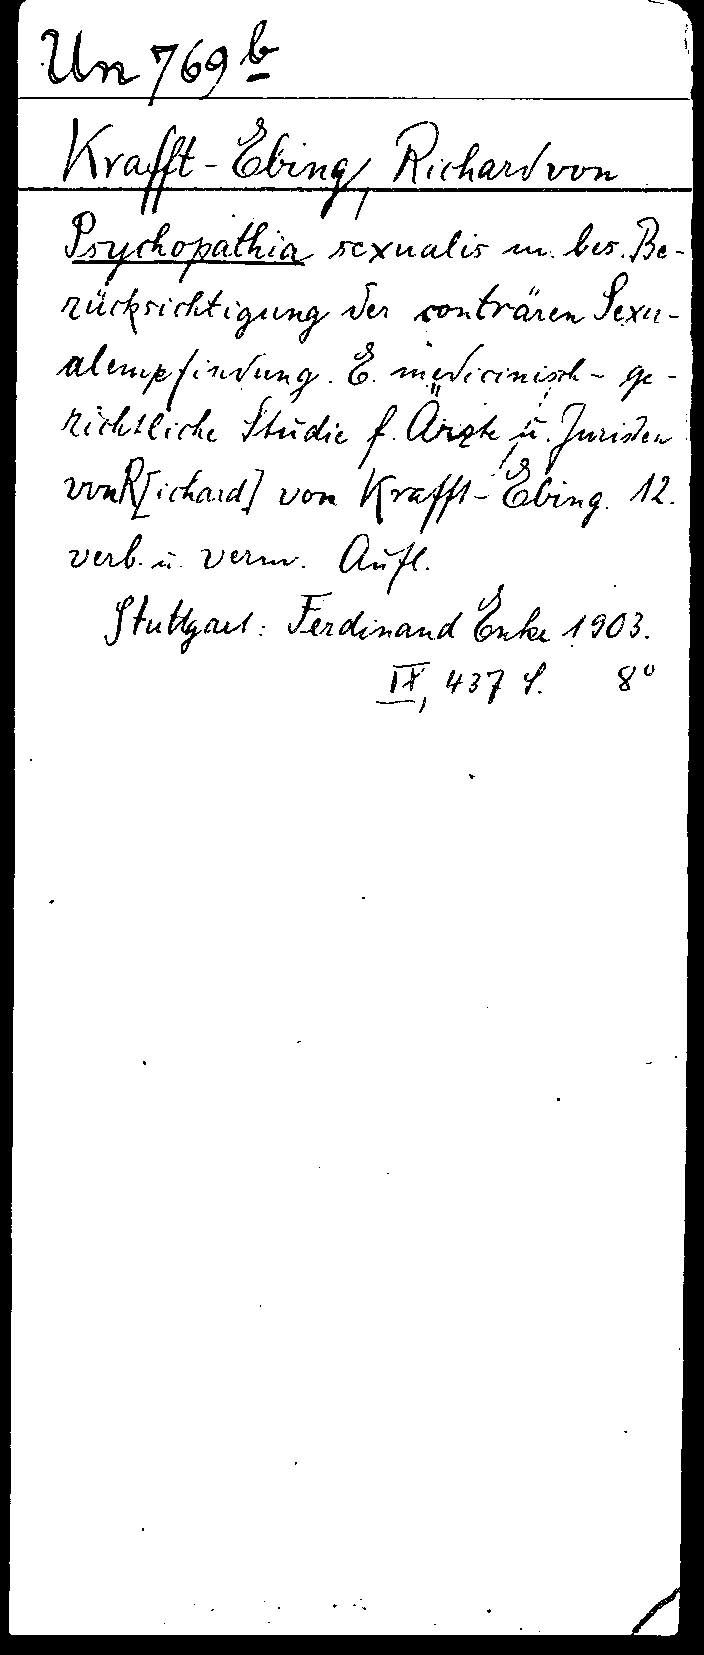 Un 769 b
Krafft-Ebing, Richard von
Psychopathia sexualis m. bes. Be-
rücksichtigung der conträren Sexu-
alempfindung. E. medicinisch-ge-
richtliche Studie f. Ärzte u. Juristen
von R[ichard] von Krafft-Ebing. 12.
verb. u. verm. Aufl.
Stuttgart: Ferdinand Enke 1903.
IX, 437 S. 8°